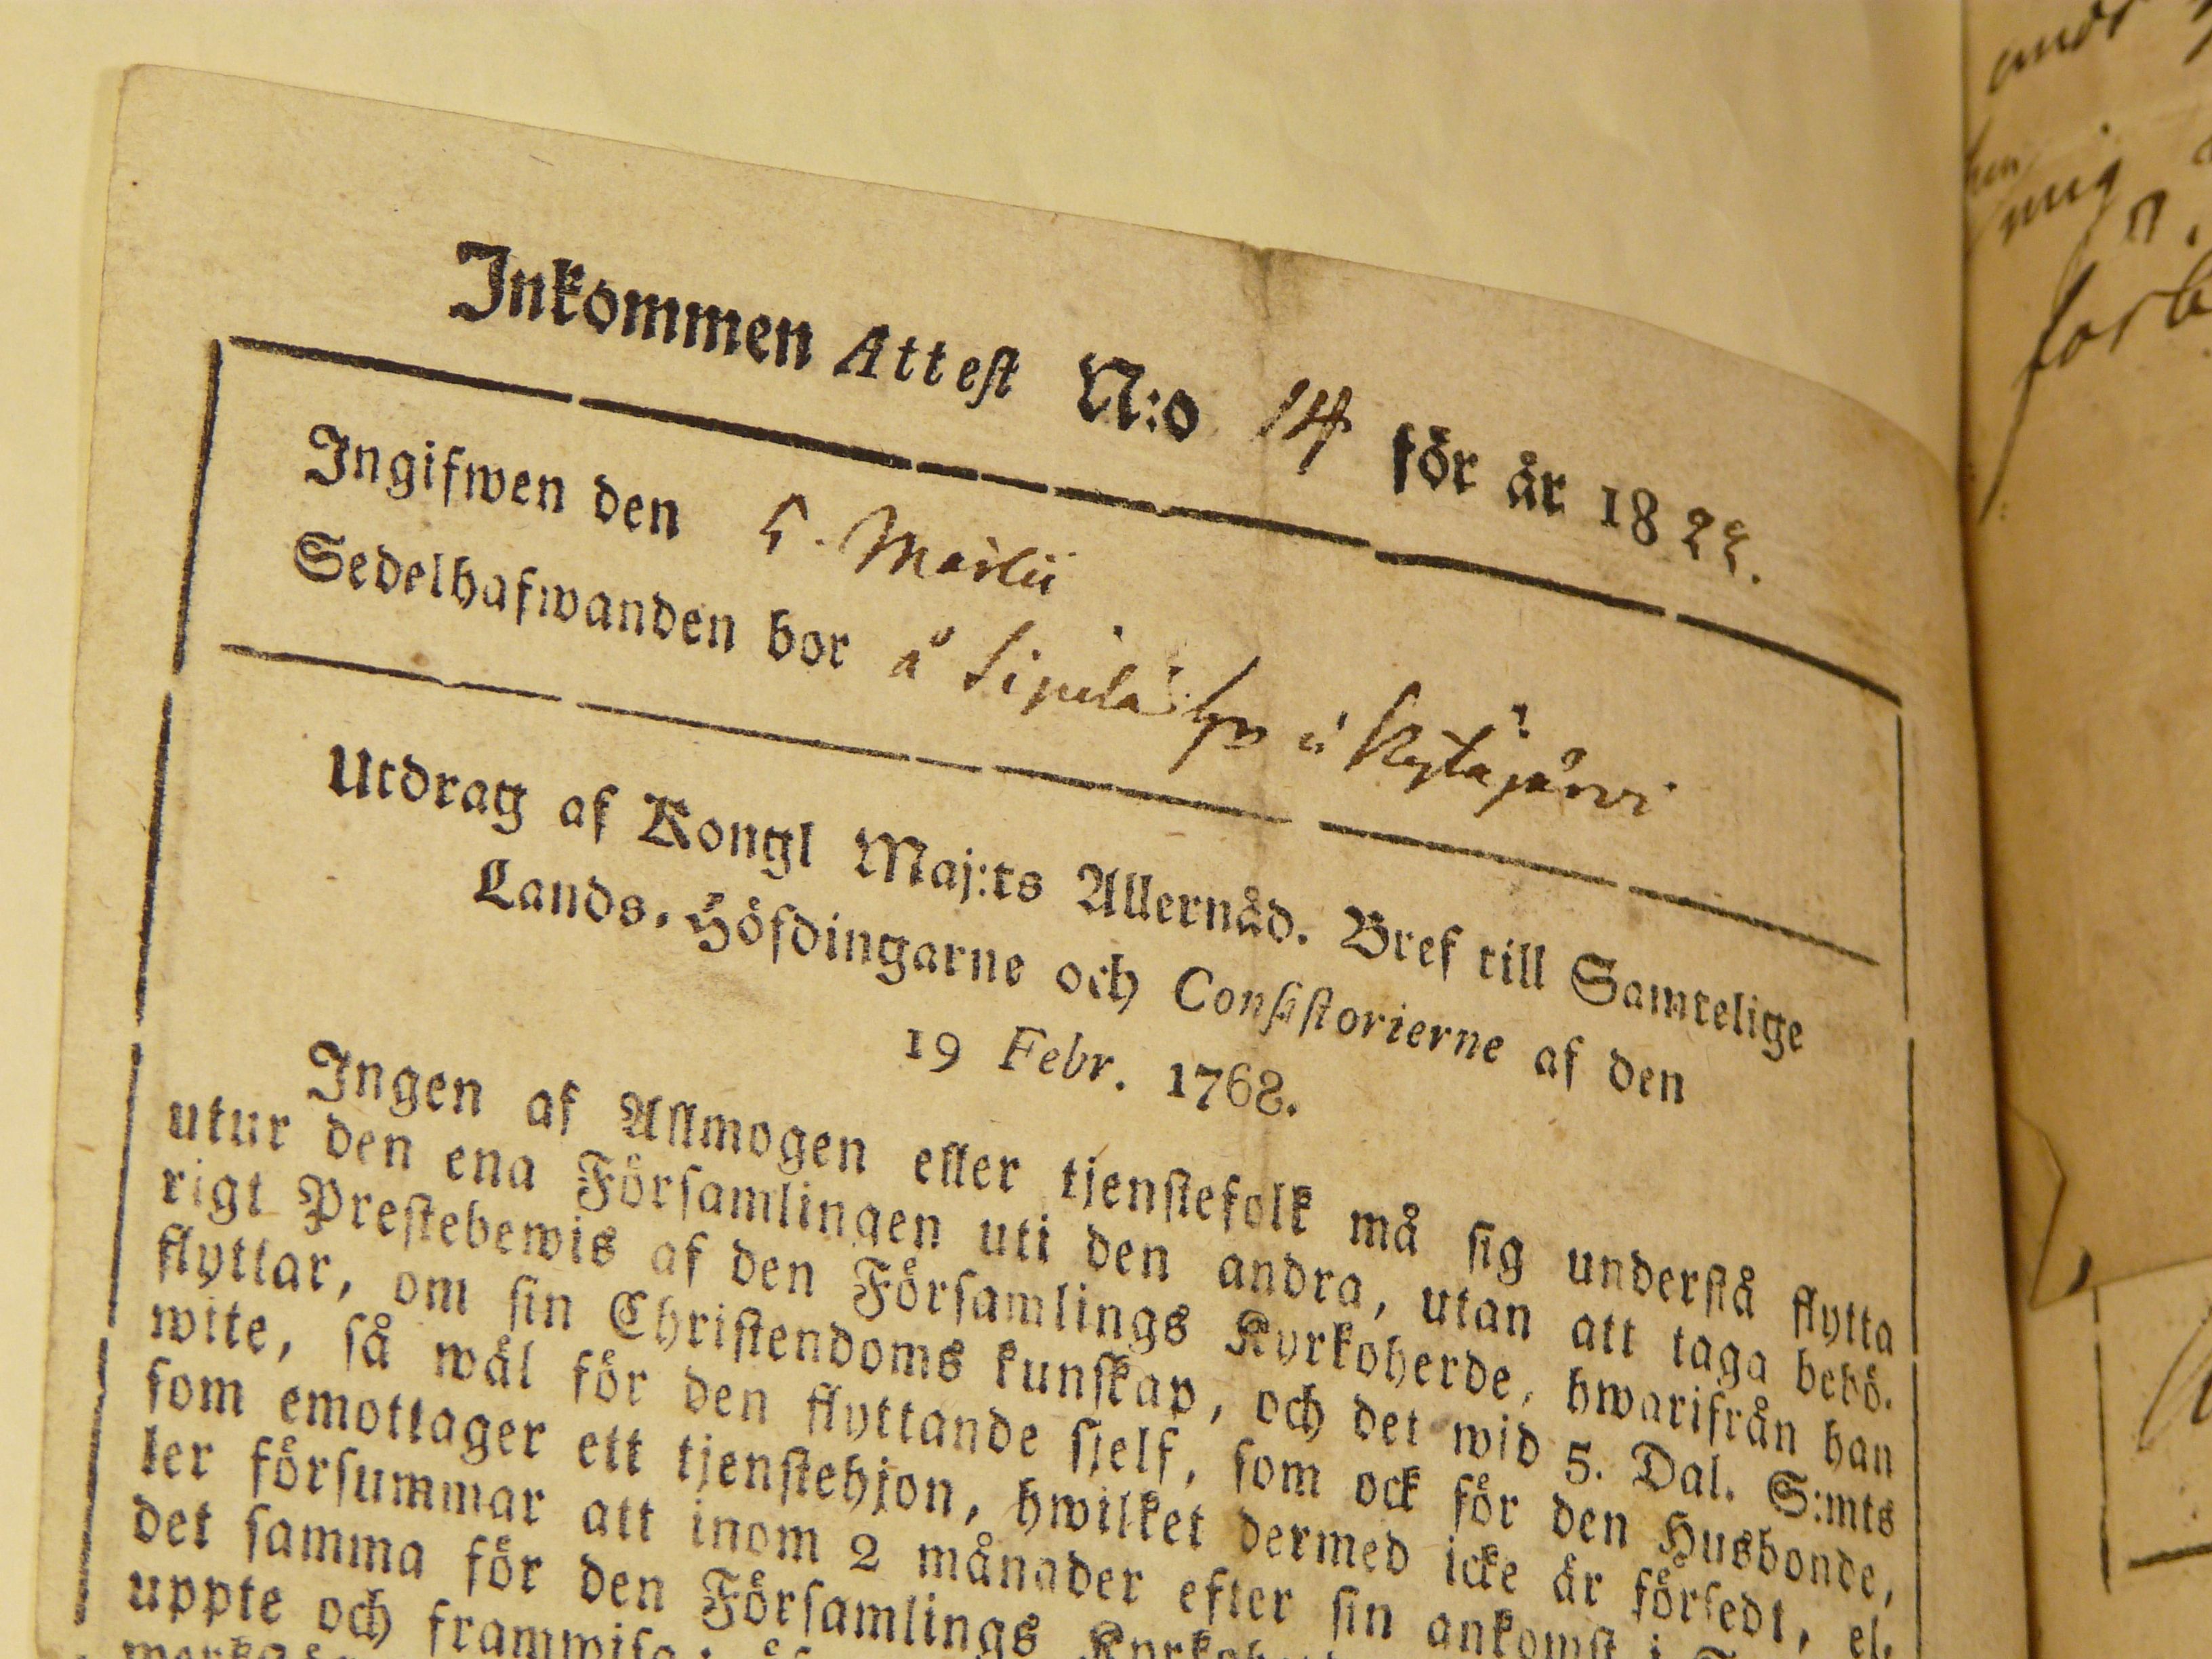 Inkommen Attest N:o 14 för år 1822.
Ingifwen den 5. Martii
Sedelhafwanden bor å Sipilä i Kytäjärvi
Utdrag af Kongl Maj:ts Allernåd. Bref till Samtelige
Lands-Höfdingarne och Consistorierne af den
19 Febr. 1768.
Ingen af Allmogen eller tjenstefolk må sig understå flytta
utur den ena Församlingen uti den andra, utan att taga behö-
rigt Prestebewis af den Församlings Kyrkoherde, hwarifrån han
flyttar, om sin Christendoms kunskap, och det wid 5. Dal. S:mts
wite, så wäl för den flyttande sjelf, som ock för den Husbonde,
som emottager ett tjenstehjon, hwilket dermed icke är försedt, el-
ler försummar att inom 2 månader efter sin ankomst i
det samma för den Församlings
uppte och framwisa
andr
mig